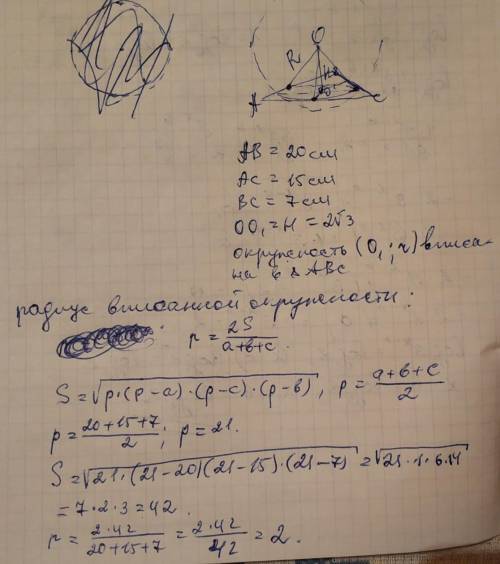 O
R
H
A
O₁
C
AB = 20 см
AC = 15 см
BC = 7 см
OO₁ = H = 2√3
окружность (O₁; r) вписа-
на в Δ ABC
радиус вписанной окружности:
r = 2S/(a+b+c).
S = √(p·(p-a)·(p-c)·(p-b)), p = (a+b+c)/2
p = (20+15+7)/2; p = 21.
S = √(21·(21-20)(21-15)·(21-7)) = √(21·1·6·14)
= 7·2·3 = 42.
r = (2·42)/(20+15+7) = (2·42)/42 = 2.